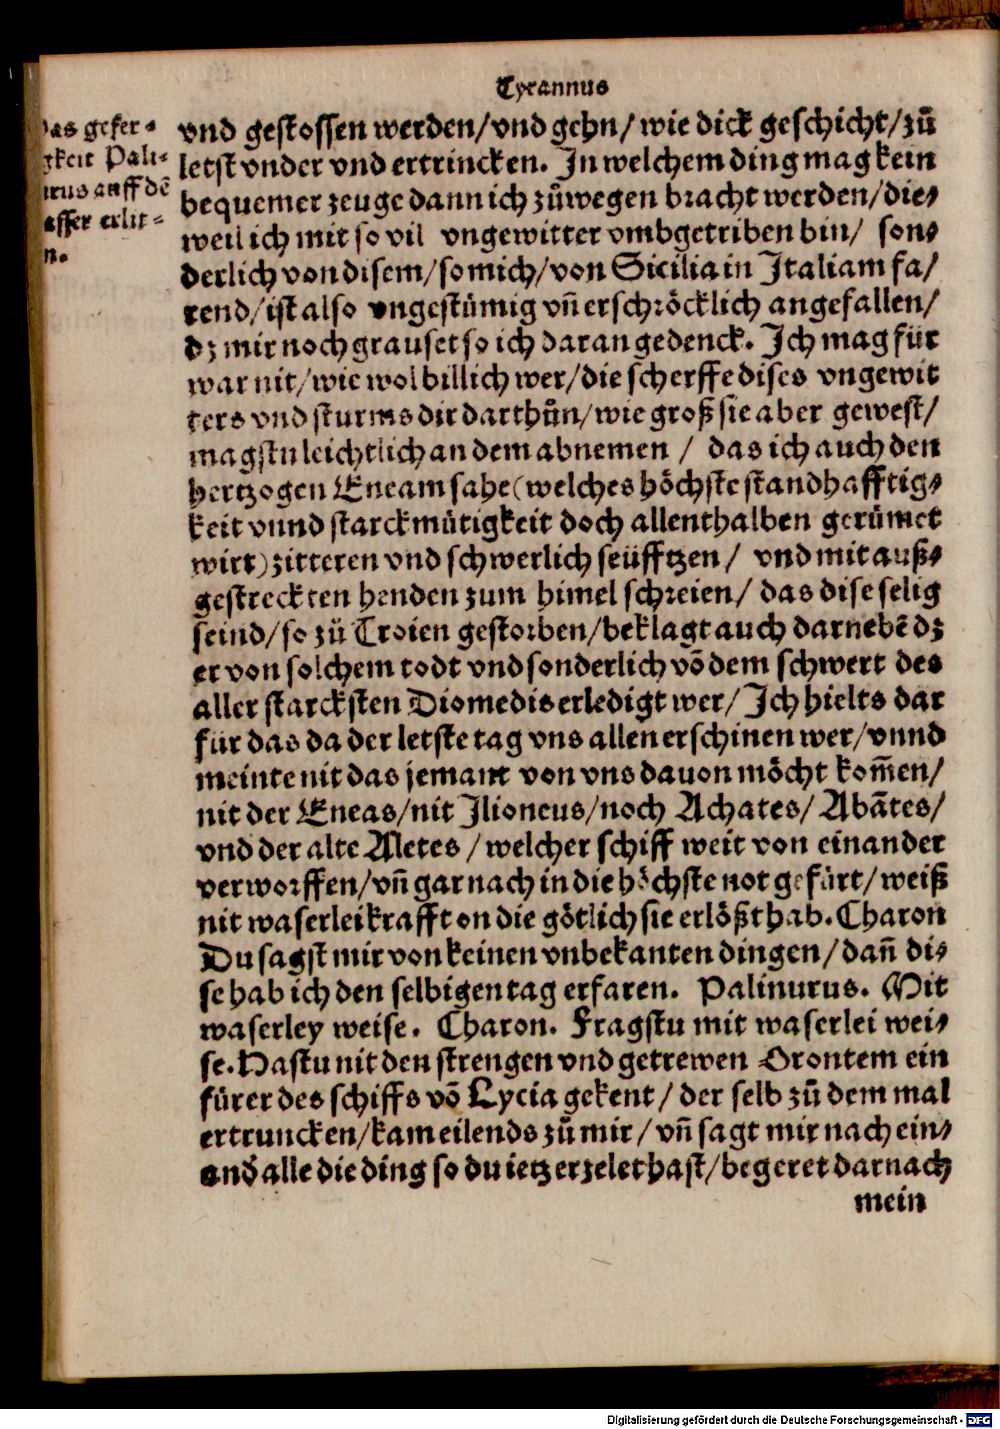 Tyrannus
Das gefer-
gkeit Pali-
urus auff dē
asser erlit-
n.
vnd gestossen werden/vnd gehn/ wie dick geschicht/zů
letst vnder vnd ertrincken. In welchem ding mag kein
bequemer zeuge dann ich zůwegen bracht werden/die-
weil ich mit so vil vngewitter vmbgetriben bin/ son-
derlich von disem/so mich/von Sicilia in Italiam fa/
rend/ist also vngestümig vñ erschröcklich angefallen/
dz mir noch grauset so ich daran gedenck. Ich mag für
war nit/wie wol billich wer/die scherffe dises vngewit
ters vnd sturms dir darthůn/wie groß sie aber gewest/
magstu leichtlich an dem abnemen / das ich auch den
hertzogen Eneam sahe(welches höchste standhafftig-
keit vnnd starckmütigkeit doch allenthalben gerümet
wirt)zitteren vnd schwerlich seüfftzen/ vnd mit auß-
gestreckten henden zum himel schreien/ das dise selig
seind/so zů Troien gestorben/beklagt auch darnebē dz
er von solchem todt vnd sonderlich vō dem schwert des
aller starcksten Diomedis erledigt wer/Ich hielts dar
für das da der letste tag vns allen erschinen wer/vnnd
meinte nit das jemant von vns dauon möcht kom̄en/
nit der Eneas/nit Ilioneus/noch Achates/Abātes/
vnd der alte Aletes /welcher schiff weit von einander
verworffen/vñ gar nach in die höchste not gefürt/weiß
nit waserlei krafft on die götlich sie erlößt hab. Charon
Du sagst mir von keinen vnbekanten dingen/dañ di-
se hab ich den selbigen tag erfaren. Palinurus. Mit
waserley weise. Charon. Fragstu mit waserlei wei-
se. Hastu nit den strengen vnd getrewen Orontem ein
fürer des schiffs vō Lycia gekent/der selb zů dem mal
ertruncken/kam eilends zů mir/vñ sagt mir nach ein-
andᷣ alle die ding so du ietz erzelet hast/begeret darnach
mein
Digitalisierung gefördert durch die Deutsche Forschungsgemeinschaft - DFG